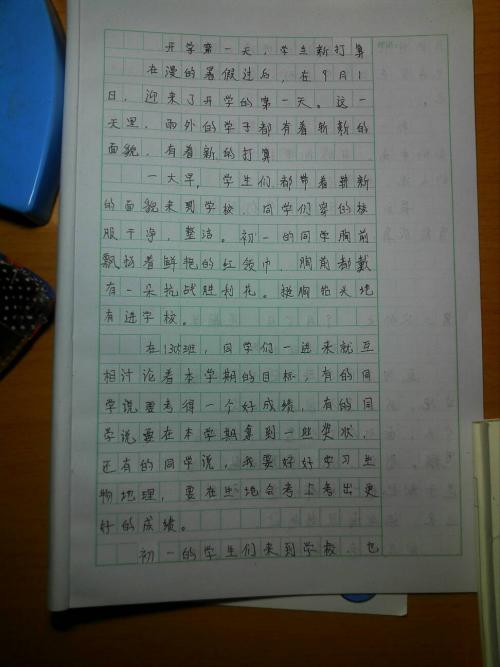 开学第一天，学生新打算
在漫的暑假过后，在9月1
日，迎来了开学的第一天。这一
天里，雨外的学子都有着崭新的
面貌，有着新的打算
一大早，学生们都带着崭新
的面貌来到学校，同学们穿的校
服干净，整洁。初一的同学胸前
飘扬着鲜艳的红领巾，胸前都戴
有一朵抗战胜利花。挺胸抬头地
有进学校。
在1305班，同学们一进来就互
相讨论着本学期的目标，有的同
学说要考得一个好成绩，有的同
学说要在本学期拿到一些奖状，
还有的同学说，我要好好学习生
物地理，要在生地会考上考出更
好的成绩。
初一的学生们来到学校，也